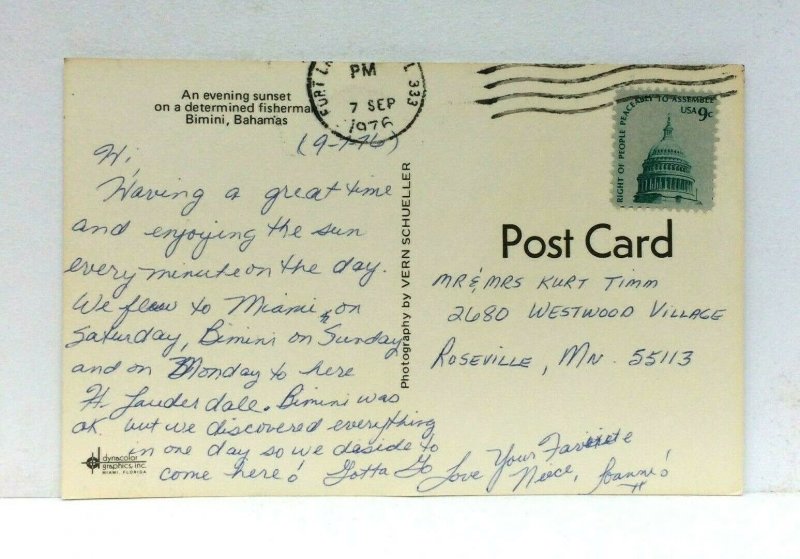 An evening sunset
on a determined fisherma
Bimini, Bahamas
FORT LA
PM
7 SEP
1976
333
RIGHT OF PEOPLE PEACEABLY TO ASSEMBLE
USA 9c
Hi,
(9-7-76)
Having a great time
and enjoying the sun
every minute on the day.
We flew to Miami, on
Saturday, Bimini on Sunday
and on Monday to here
Ft. Lauderdale. Bimini was
ok but we discovered everything
in one day so we daside to
come here! Gotta Go
Love Your Favorite
Niece, Joanne
Photography by VERN SCHUELLER
Post Card
MR & MRS KURT TIMM
2680 WESTWOOD VILLAGE
ROSEVILLE, MN. 55113
dynacolor
graphics, inc.
MIAMI, FLORIDA